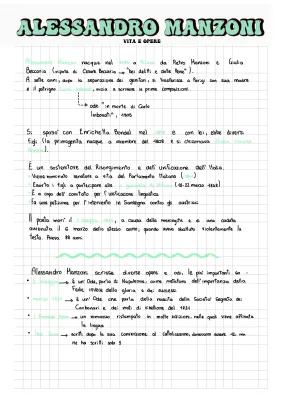 ALESSANDRO MANZONI
VITA E OPERE
Alessandro Manzoni nacque nel a Milano da Pietro Manzoni e Giulia
Beccaria (nipote di Cesare Beccaria → "Dei delitti e delle Pene").
A sette anni, dopo la separazione dei genitori, si trasferisce a Parigi con sua madre
e il patrigno inizia a scrivere le prime composizioni.
ode "in morte di Carlo
Imbonati", 1806
Si sposa con Enrichetta Blondel nel e con lei, ebbe diversi
figli (la primogenita nacque a dicembre del 1808 e si chiamava
È un sostenitore del Risorgimento e dell'unificazione dell'Italia.
Viene nominato senatore a vita del Parlamento Italiano
Esorta i figli a partecipare alle (18-22 marzo 1848)
È a capo del comitato per l'unificazione linguistica
Fa una petizione per l'intervento in Sardegna contro gli austriaci
Il poeta morì il a causa della meningite e di una caduta
avvenuta il 6 marzo dello stesso anno, quando aveva sbattuto violentemente la
testa. Aveva 88 anni.
Alessandro Manzoni scrisse diverse opere e odi, le più importanti so-
→ è un'Ode, parla di Napoleone, come metafora dell'importanza della
Fede invece della gloria e del successo
→ è un'Ode che parla della nascita delle Società Segrete dei
Carbonari e dei moti di ribellione del 1821
→ un romanzo ristampato in molte edizioni, nelle quali viene affinata
la lingua
→ scritti dopo la sua conversione al Cattolicesimo, dovevano essere 12 ma
ne ha scritti solo 5